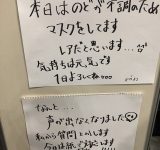 本日はのどが不調のため
マスクをしてます
レアだと思います…
気持ちは元気です
1日よろしくね
なんと…
声が出なくなりました
私から質問
今日は